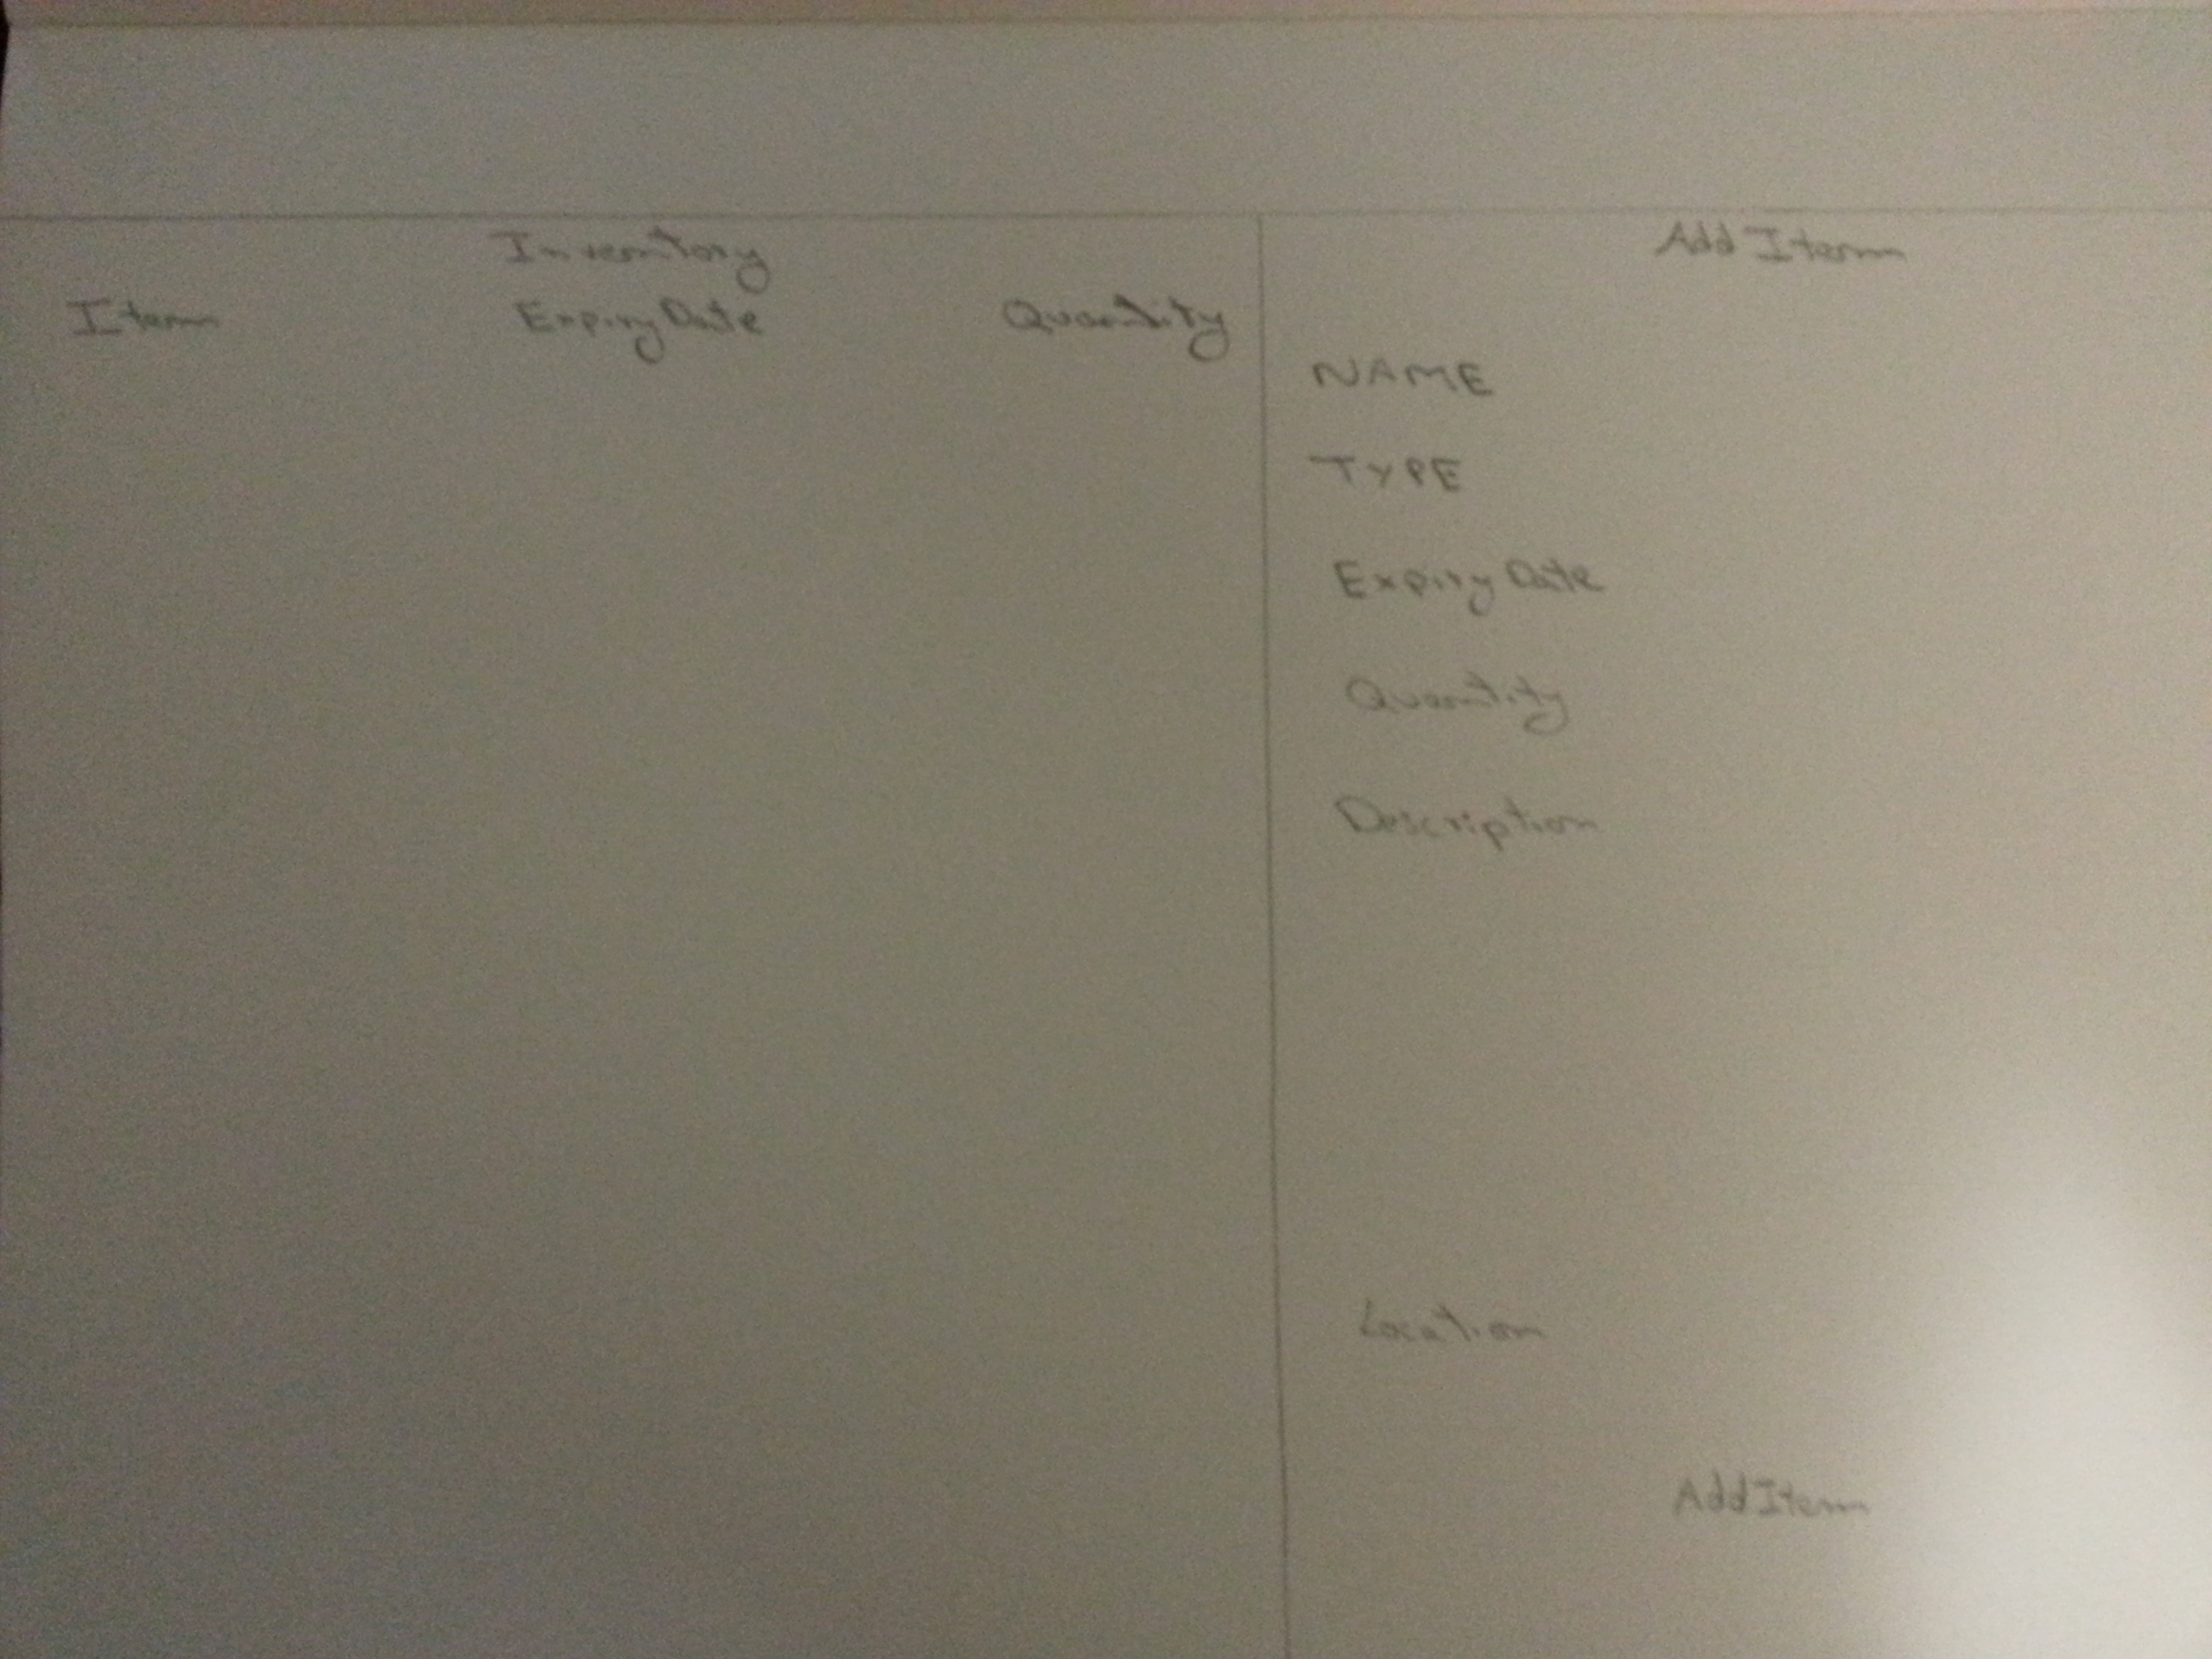 Inventory
Item Expiry Date Quantity
Add Item
NAME
TYPE
Expiry Date
Quantity
Description
Location
Add Item